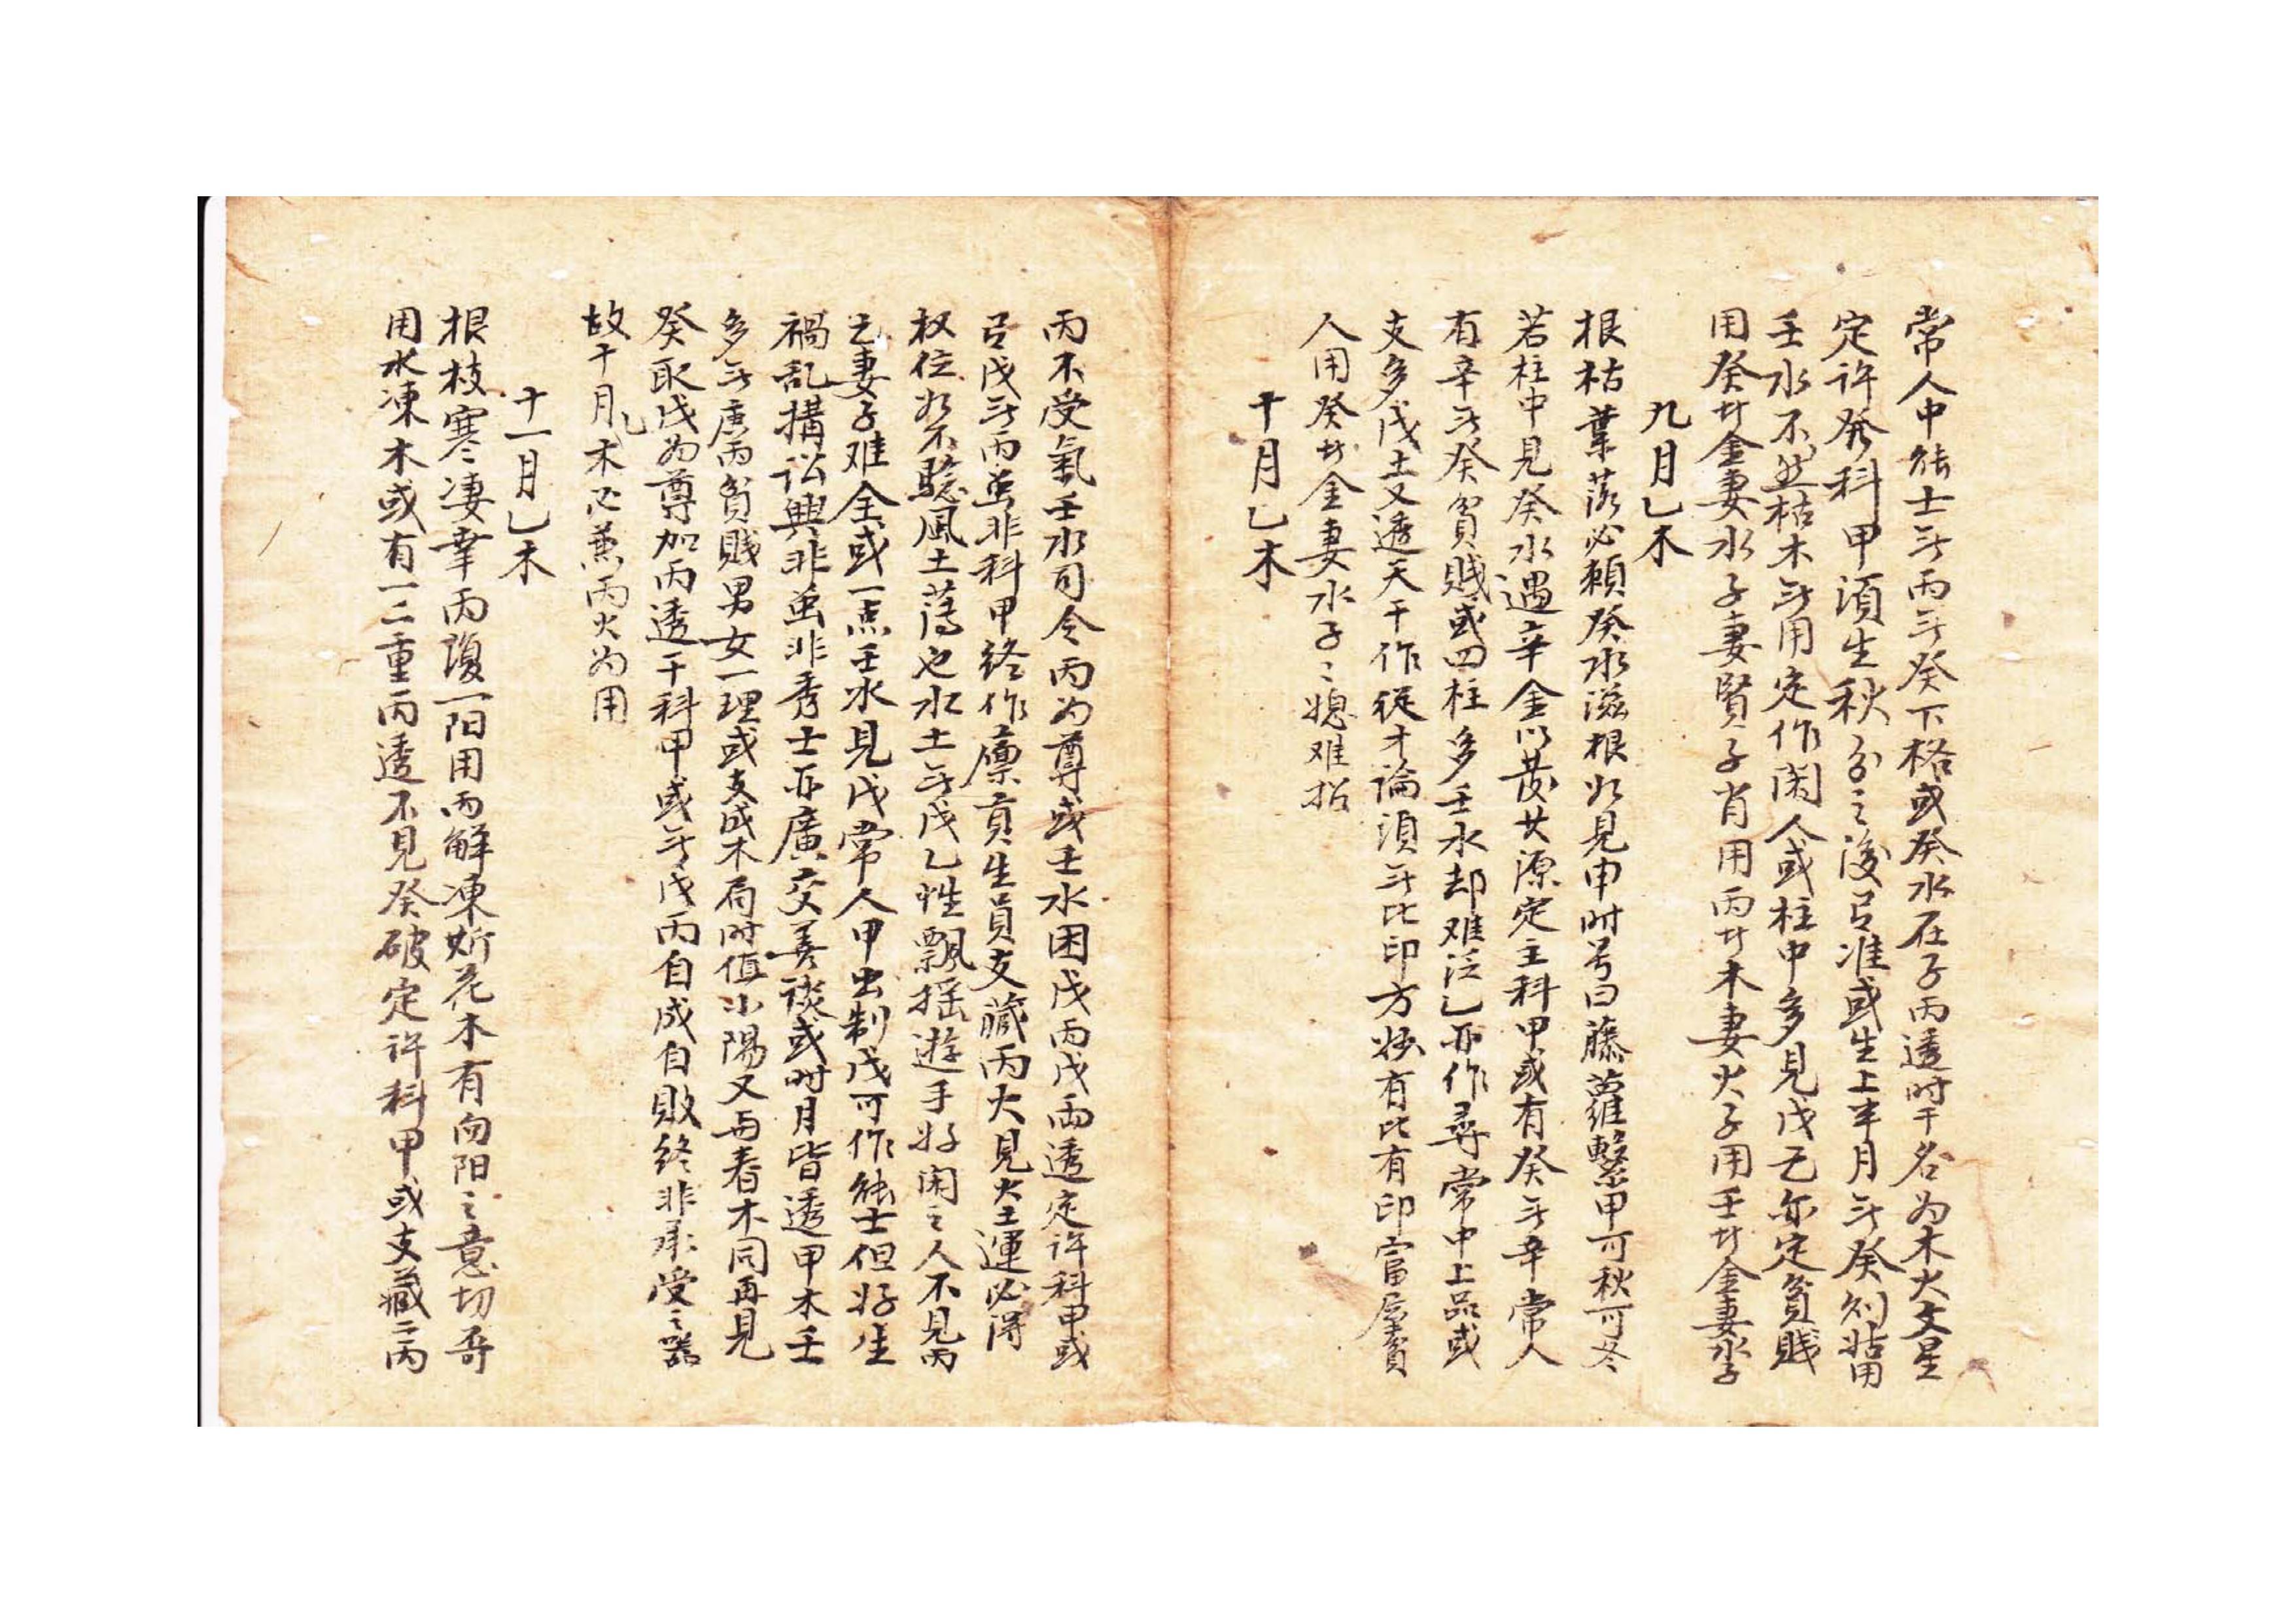 常人中能士无丙无癸下格或癸水在子丙透时干名为木火文星
定许發科甲須生秋分之後吕准或生上半月无癸則姑用
壬水不然枯木无用定作闲人或柱中多見戊己亦定贫賤
用癸廿金妻水子妻賢子肖用丙廿木妻火子用壬廿金妻水子
九月乙木
根枯葉落必頼癸水滋根如見申时号曰藤蘿繫甲可秋可冬
若柱中見癸水遇辛金以發廿源定主科甲或有癸无辛常人
有辛无癸貧賤或四柱多壬水却难泛乙亦作尋常中上品或
支多戊土又透天干作從才論須无比印方妙有比有印富屋貧
人用癸廿金妻水子〻媳难招
十月乙木
丙不受氣壬水司令丙为尊或壬水困戊丙戊両透定许科甲或
吕戊无丙虽非科甲终作廪貢生員支藏丙火見火土運必得
权位如不驗風土薄也水土无戊乙性飄摇遊手好闲之人不見丙
己妻子难全或一点壬水見戊常人甲出制戊可作能士但好生
禍乱搆讼興非虽非秀士亦廣交善談或时月皆透甲木壬
多无庚丙貧賤男女一理或支成木局时值小陽又与春木同再見
癸取戊为尊加丙透干科甲或无戊丙自成自敗终非承受之器
故十月乙木必兼丙火为用
十一月乙木
根枝寒凄幸丙複一阳用丙解凍斯花木有向阳之意切弄
用水凍木或有一二重丙透不見癸破定许科甲或支藏二丙